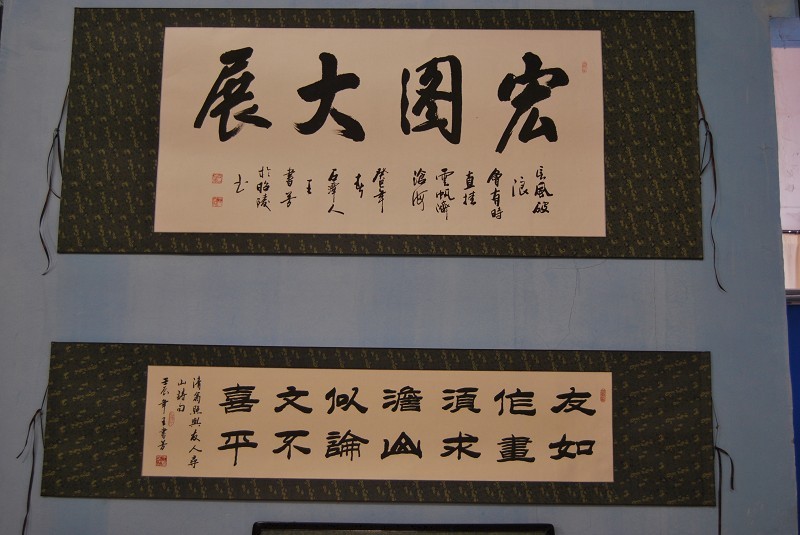 宏圖大展
長風破
浪
會有時
直挂
雲帆濟
滄海
癸巳年
春
王
書芳
於昭陵
友如
作畫
須求
澹山
似論
文不
喜平
清翁照與友人尋
山詩句
壬辰年王書芳